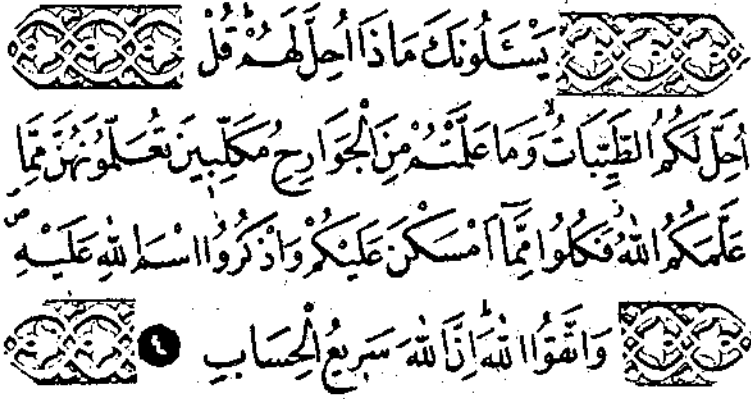 يَسْـَٔلُونَكَ مَاذَا اُحِلَّ لَهُمْ قُلْ
اُحِلَّ لَكُمُ الطَّيِّبَاتُ وَمَا عَلَّمْتُمْ مِنَ الْجَوَارِحِ مُكَلِّبٖينَ تُعَلِّمُونَهُنَّ مِمَّا
عَلَّمَكُمُ اللّٰهُ فَكُلُوا مِمَّٓا اَمْسَكْنَ عَلَيْكُمْ وَاذْكُرُوا اسْمَ اللّٰهِ عَلَيْهِ
وَاتَّقُوا اللّٰهَ اِنَّ اللّٰهَ سَرٖيعُ الْحِسَابِ ٤